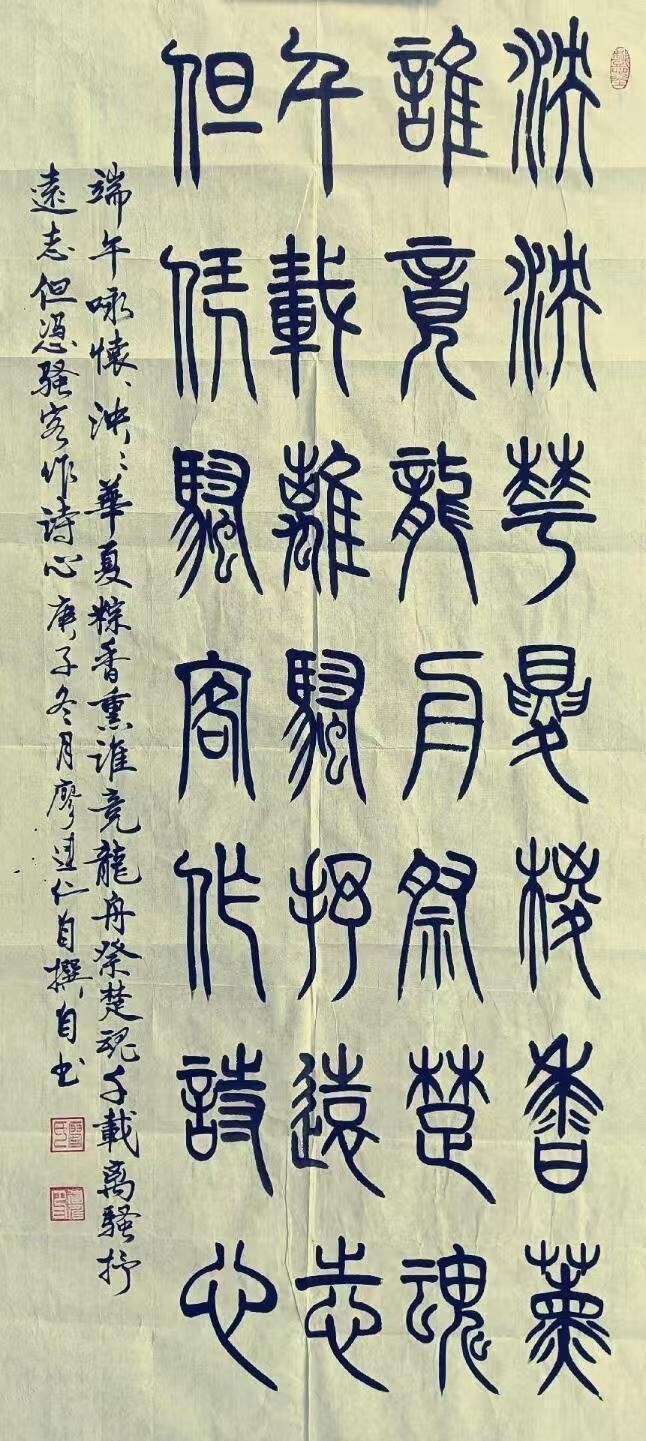 泱泱華夏椶香薰
誰竟龍舟祭楚魂
千載離騷抒遠志
但凭騷客作詩心
端午咏懷、泱〻華夏粽香熏誰竞龍舟祭楚魂千載离騷抒
遠志但憑騷客作詩心庚子冬月廖仁自撰自书